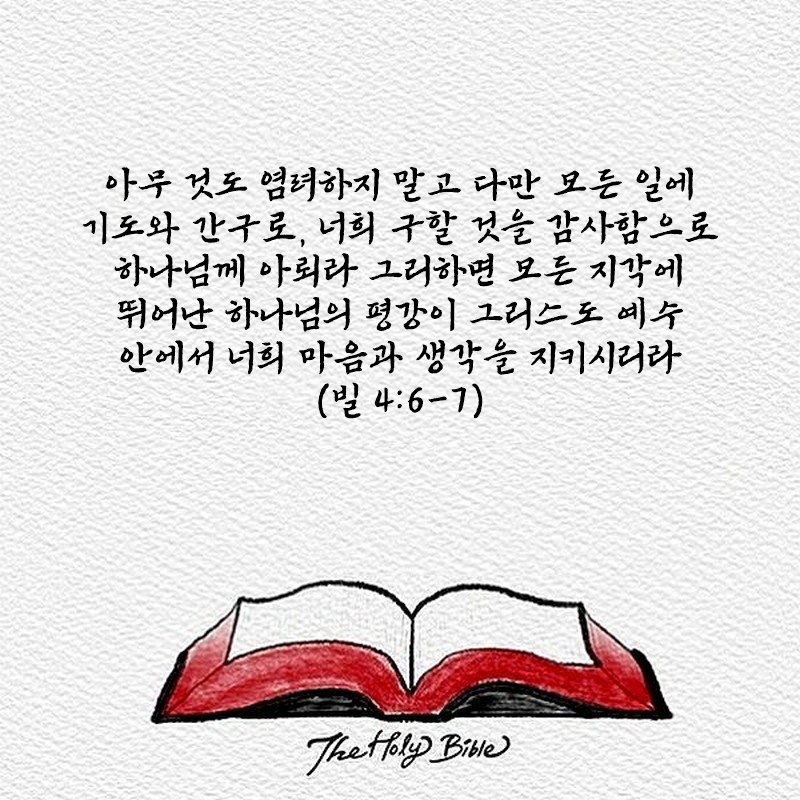 아무 것도 염려하지 말고 다만 모든 일에
기도와 간구로, 너희 구할 것을 감사함으로
하나님께 아뢰라 그리하면 모든 지각에
뛰어난 하나님의 평강이 그리스도 예수
안에서 너희 마음과 생각을 지키시리라
(빌 4:6-7)
The Holy Bible